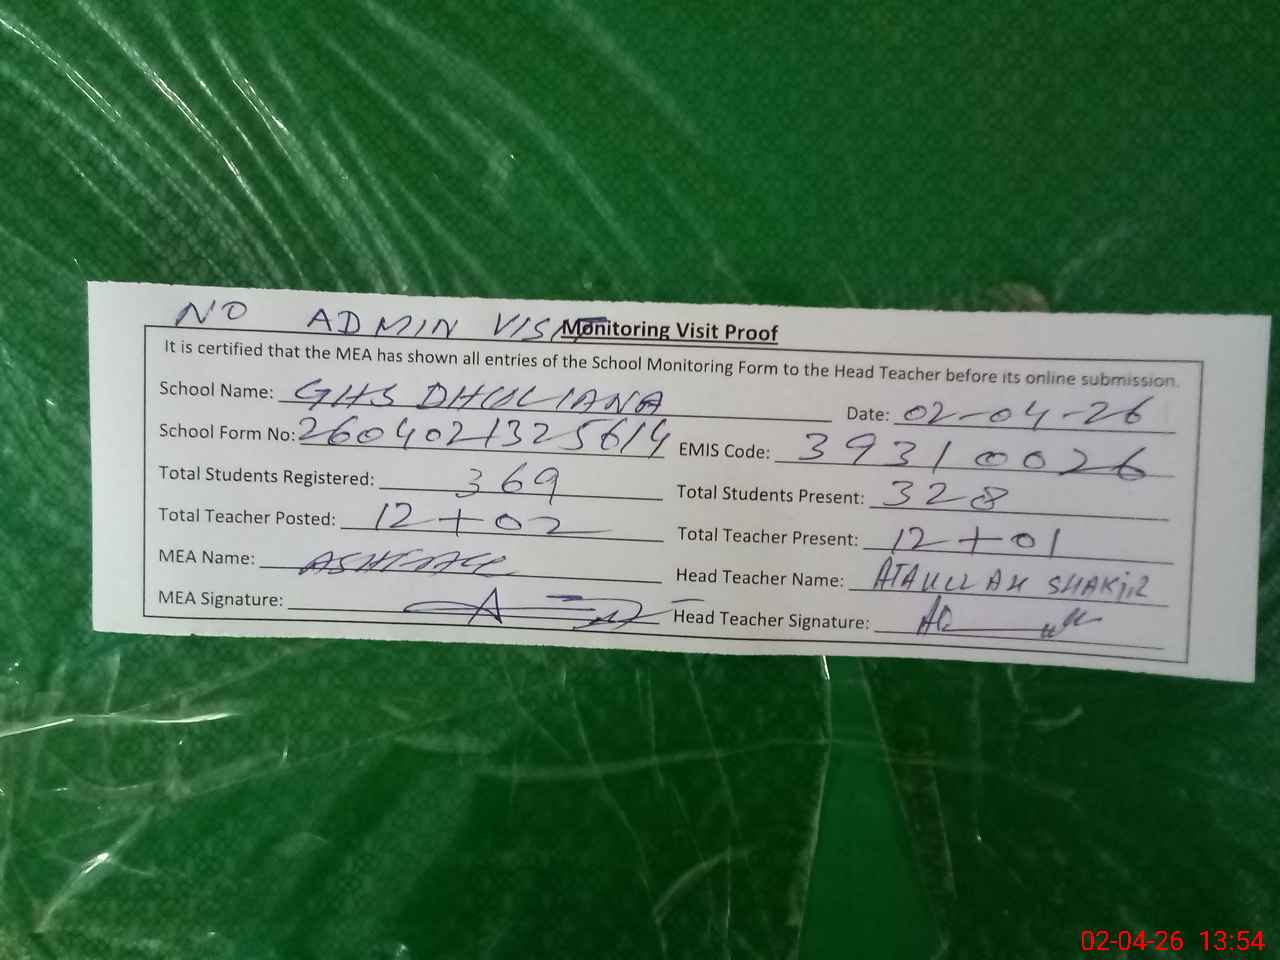 NO ADMIN VISIT
Monitoring Visit Proof
It is certified that the MEA has shown all entries of the School Monitoring Form to the Head Teacher before its online submission.
School Name: GHS DHULIANA Date: 02-04-26
School Form No: 2604021325614 EMIS Code: 39310026
Total Students Registered: 369 Total Students Present: 328
Total Teacher Posted: 12+02 Total Teacher Present: 12+01
MEA Name: Head Teacher Name: ATAULLAH SHAKIR
MEA Signature: Head Teacher Signature:
02-04-26 13:54